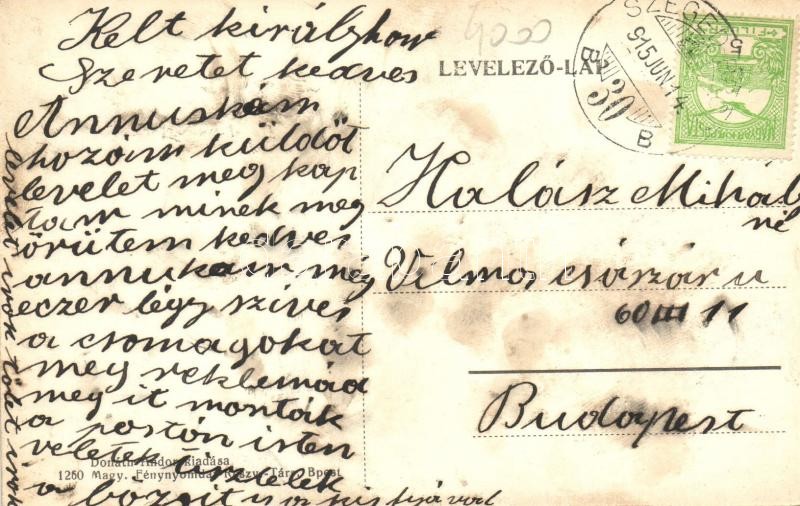 Kelt királyhow
Szeretet kedves
Annuskám
hozám küldöt
levelet meg kap
tam minek meg
örütem kedves
annukám még
eczer légy szives
a csomagokat
meg reklemád
meg it monták
a postán isten
veletek
a
levelet irok tölet irok
4000
LEVELEZŐ-LAP
SZEGED
915 JUN 14
30
B
MAGYAR KIR. POSTA
Halász Mihály
né
Vilmos császár u
60 III 11
Budapest
Donáth Andor kiadása
1260 Magy. Fénynyomdai Részv.-Társ. Bpest